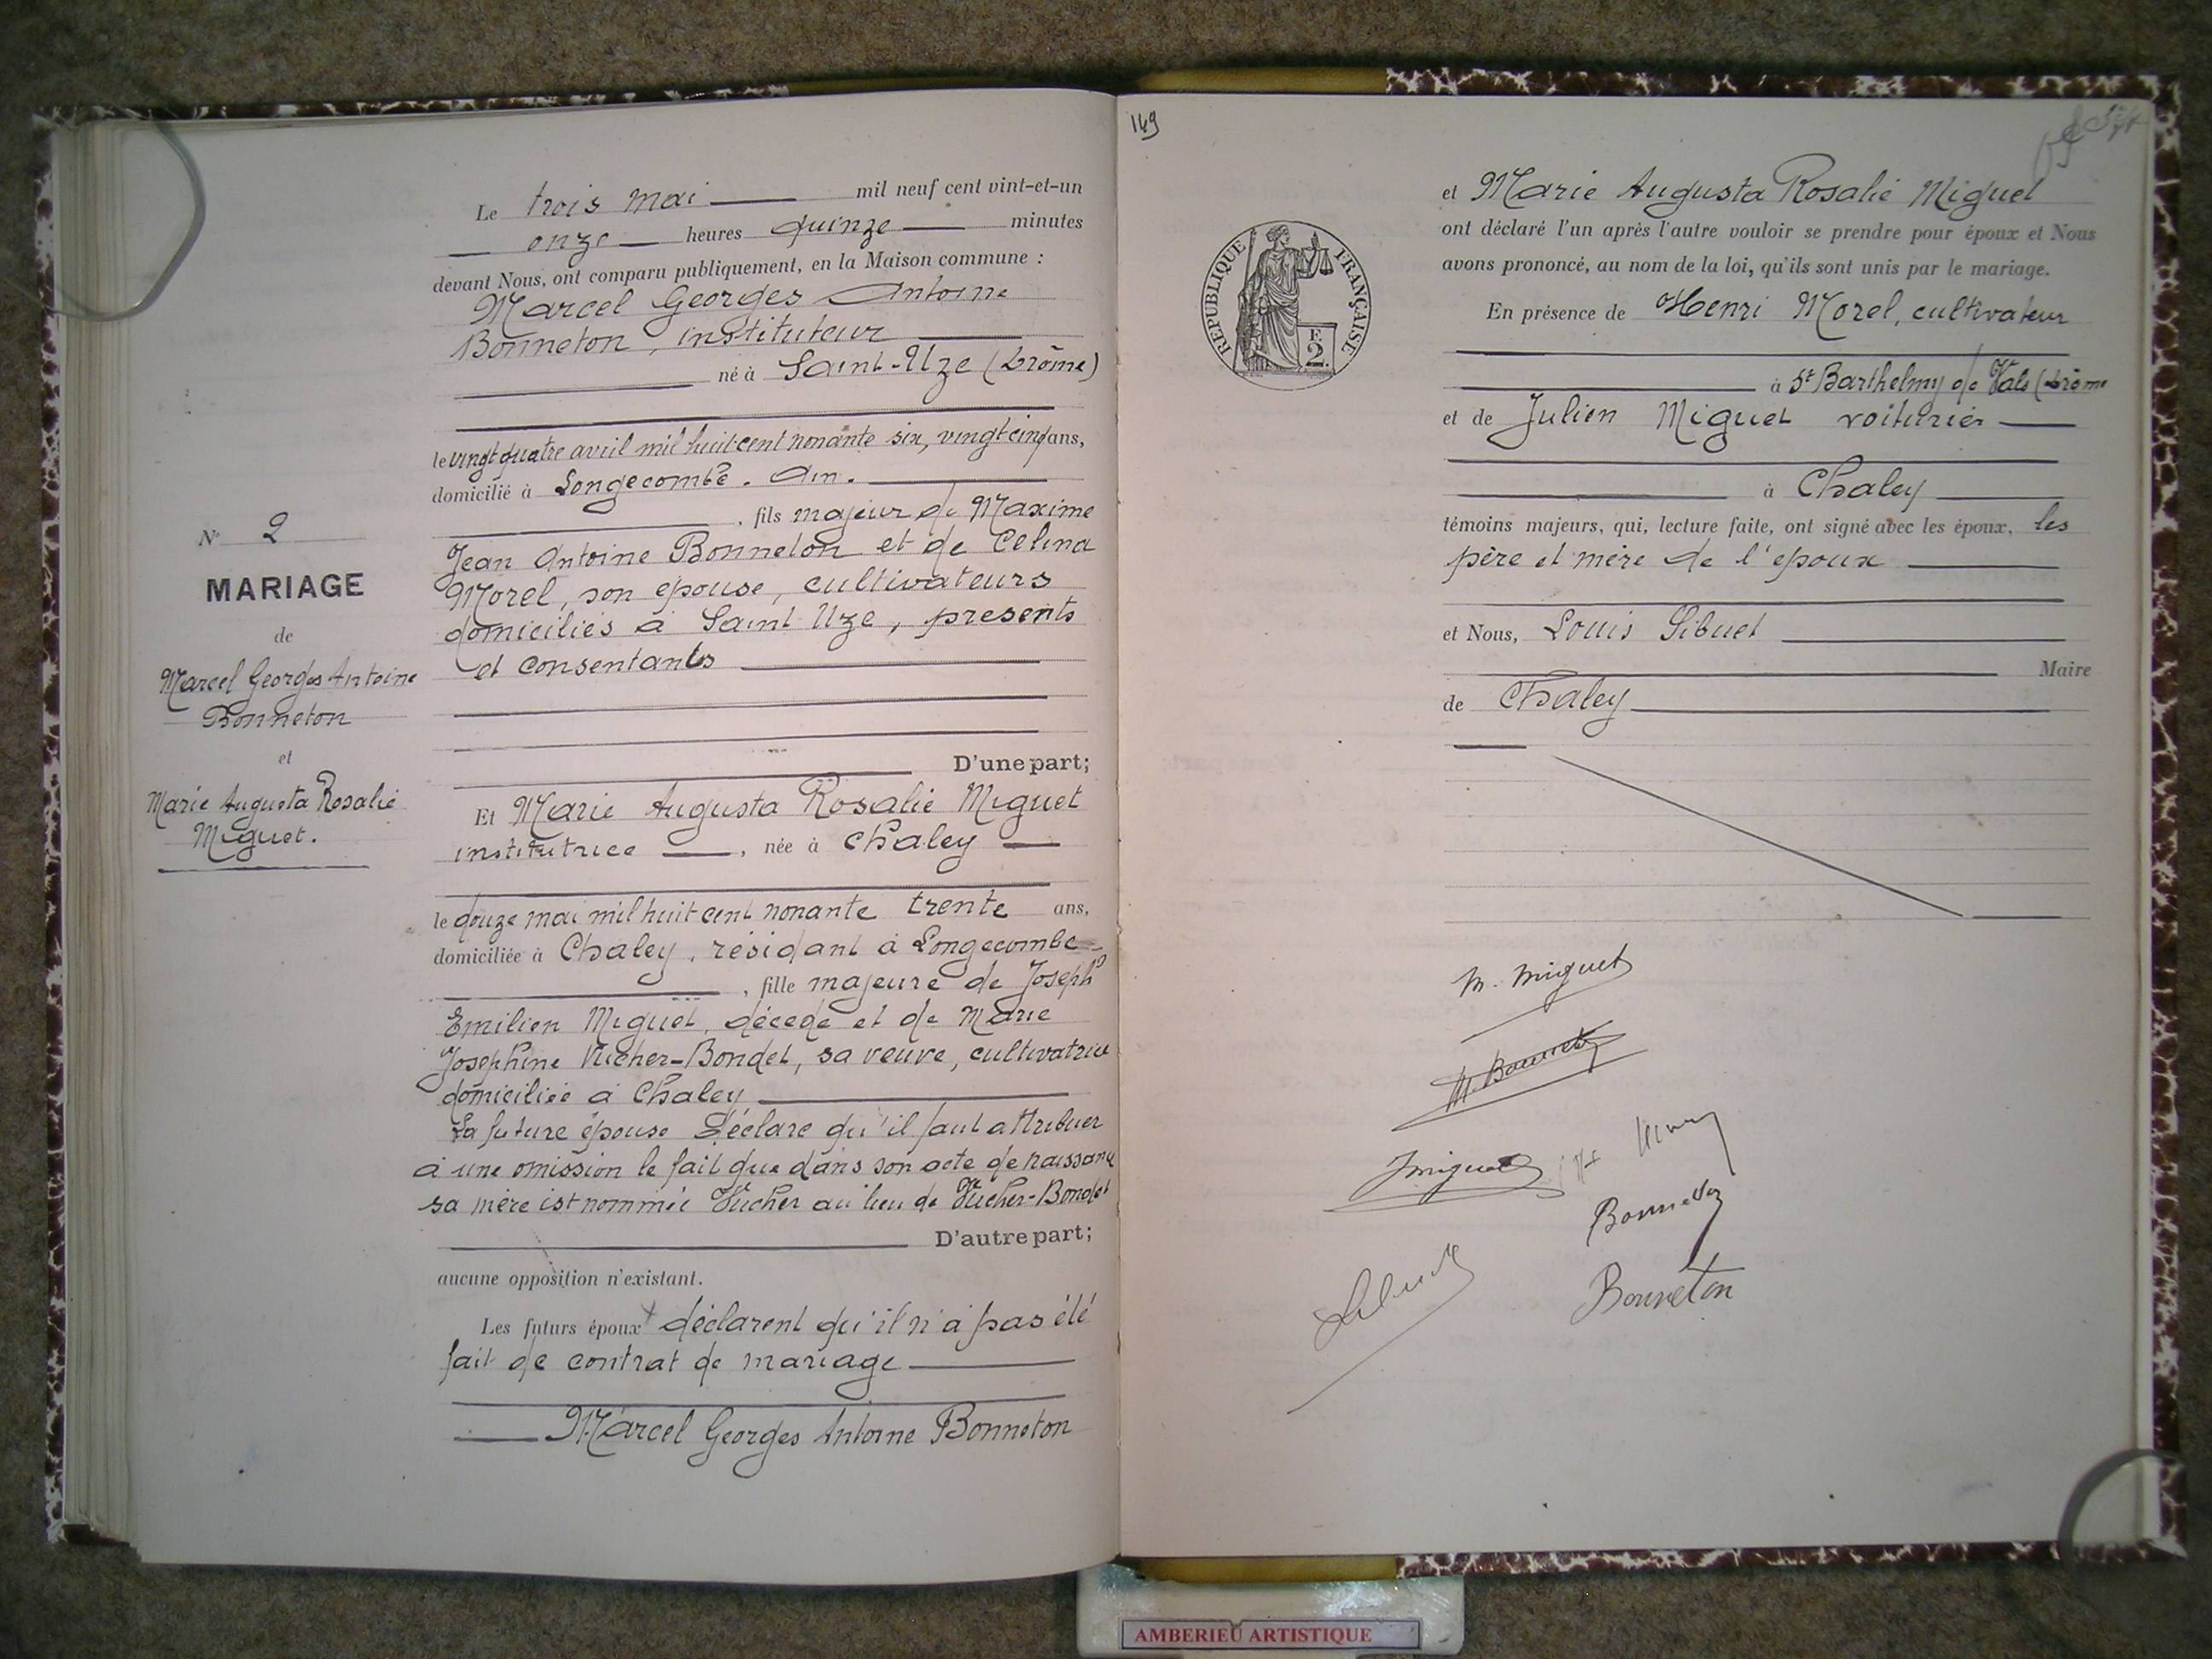 N° 2
MARIAGE
de
Marcel Georges Antoine
Bonneton
et
Marie Augusta Rosalie
Miguet.
Le trois mai mil neuf cent vint-et-un
onze heures quinze minutes
devant Nous, ont comparu publiquement, en la Maison commune :
Marcel Georges Antoine
Bonneton, instituteur
né à Saint-Uze (Drôme)
le vingt quatre avril mil huit cent nonante six, vingt cinq ans,
domicilié à Longecombe. Ain.
, fils majeur de Maxime
Jean Antoine Bonneton et de Celina
Morel, son épouse, cultivateurs
domiciliés à Saint Uze, présents
et consentants
D'une part;
Et Marie Augusta Rosalie Miguet
institutrice , née à Chaley
le douze mai mil huit cent nonante trente ans,
domiciliée à Chaley, résidant à Longecombe
, fille majeure de Joseph
Emilien Miguet, décédé et de Marie
Josephine Vucher-Bondet, sa veuve, cultivatrice
domiciliée à Chaley
La future épouse déclare qu'il faut attribuer
à une omission le fait que dans son acte de naissance
sa mère est nommée Vucher au lieu de Vucher-Bondet
D'autre part;
aucune opposition n'existant.
Les futurs époux déclarent qu'il n'a pas été
fait de contrat de mariage
Marcel Georges Antoine Bonneton
149
REPUBLIQUE FRANÇAISE
F.
2.
et Marie Augusta Rosalie Miguet
ont déclaré l'un après l'autre vouloir se prendre pour époux et Nous
avons prononcé, au nom de la loi, qu'ils sont unis par le mariage.
En présence de Henri Morel, cultivateur
à St Barthelmy de Vals (Drôme
et de Julien Miguet voiturier
à Chaley
témoins majeurs, qui, lecture faite, ont signé avec les époux, les
père et mère de l'époux
et Nous, Louis Sibuet
Maire
de Chaley
M. Miguet
M. Bonneton
J Miguet
Bonneton
Sibuet
Bonneton
AMBERIEU ARTISTIQUE